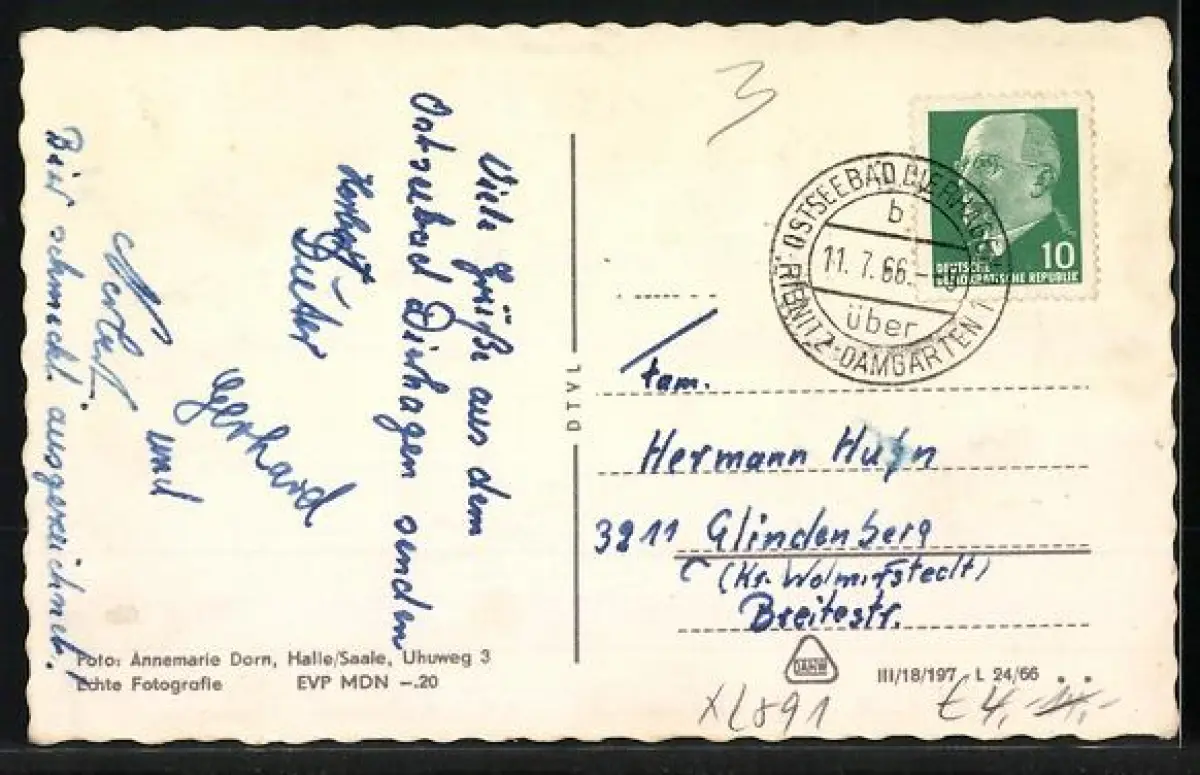 Viele Grüße aus dem
Ostseebad Dirhagen senden
Herbert
Dieter
Gerhard
und
Bier schmeckt ausgezeichnet!
Foto: Annemarie Dorn, Halle/Saale, Uhuweg 3
Echte Fotografie EVP MDN –.20
DTVL
3
10
DEUTSCHE
DEMOKRATISCHE REPUBLIK
OSTSEEBAD DIERHAGEN
b
11. 7. 66.
über
RIBNITZ-DAMGARTEN 1
Fam.
Hermann Huhn
3211 Glindenberg
(Kr. Wolmirstedt)
Breitestr.
DAHW
III/18/197 L 24/66
XL891
€ 4,-